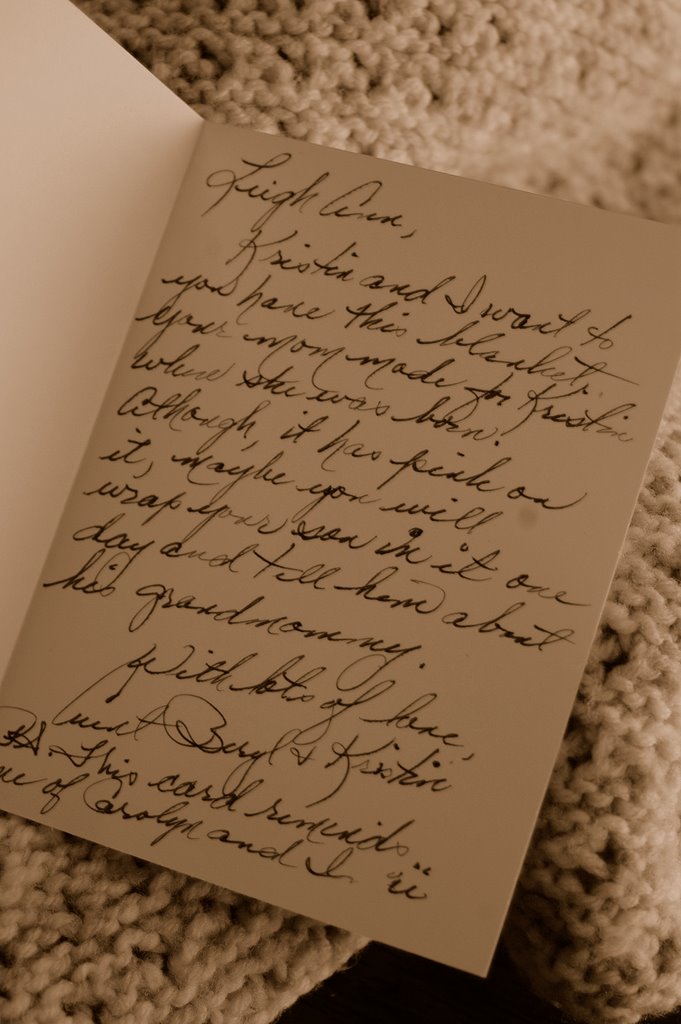 Leigh Ann,
Kristin and I want to
you have this blanket.
your mom made for Kristin
when she was born.
Although, it has pink on
it, maybe you will
wrap your son in it one
day and tell him about
his grandmommy.
With lots of love,
Aunt Beryl & Kristin
P.S. This card reminds
me of Carolyn and I.